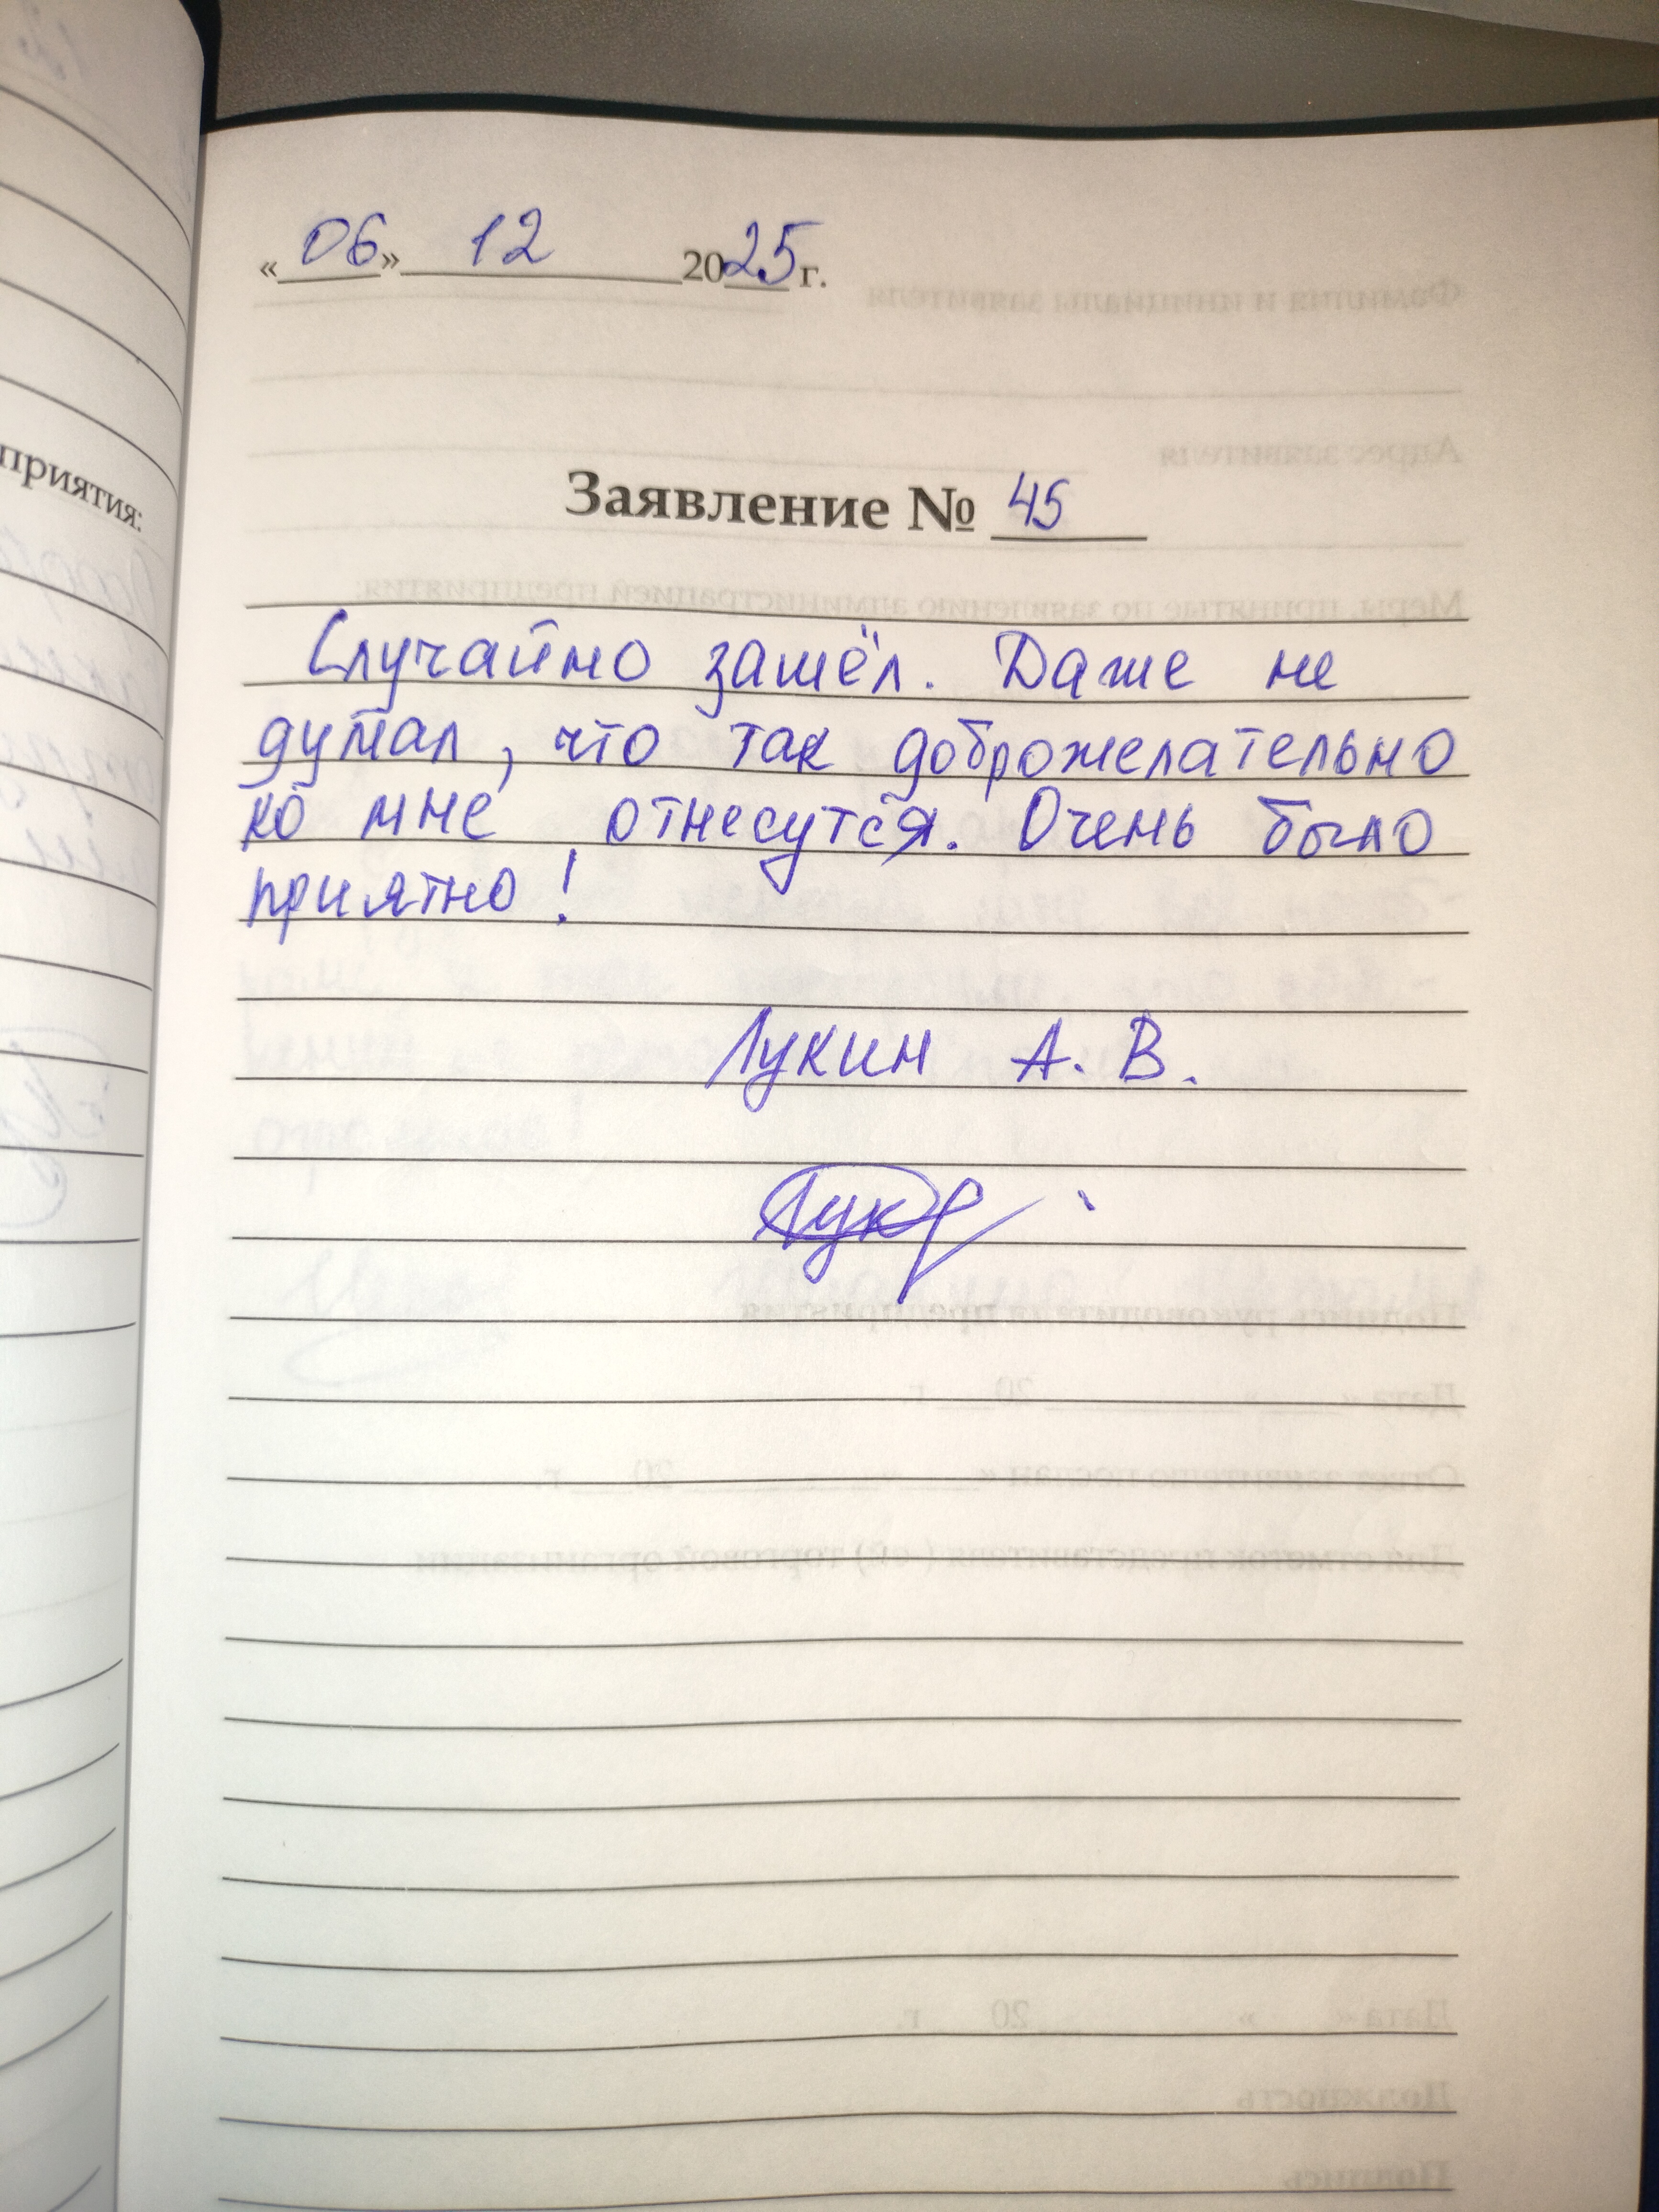 «06» 12 2025 г.
Заявление № 45
Случайно зашёл. Даже не
думал, что так доброжелательно
ко мне отнесутся. Очень было
приятно!
Лукин А. В.
Лук
приятия: